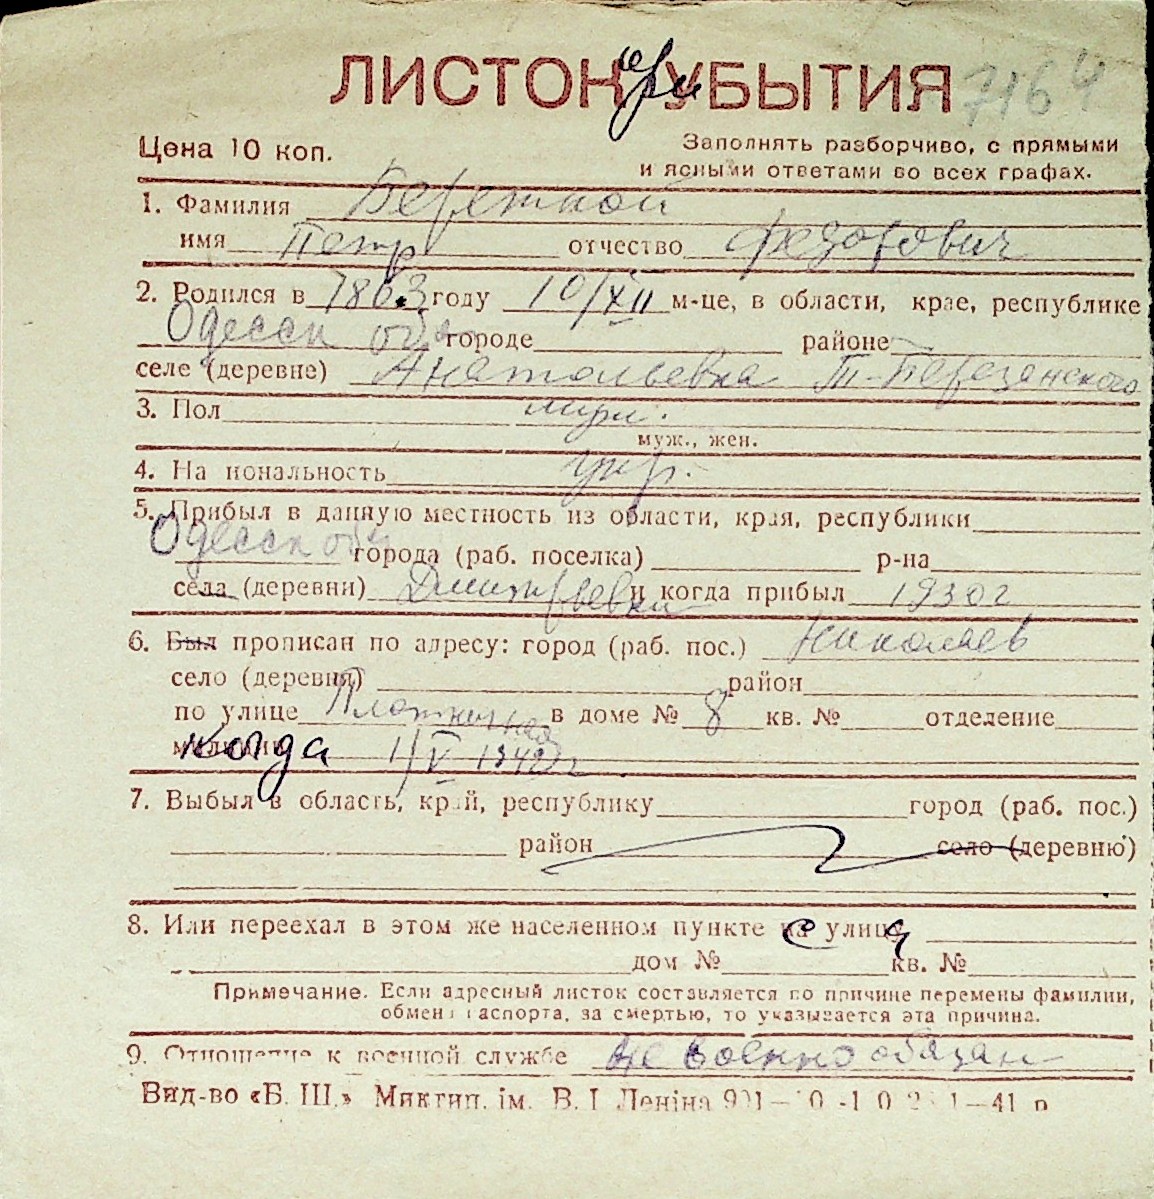 ЛИСТОК при УБЫТИЯ 7164
Цена 10 коп. Заполнять разборчиво, с прямыми
и ясными ответами во всех графах.
1. Фамилия Бережной
имя Петр отчество Федорович
2. Родился в 1863 году 10/XII м-це, в области, крае, республике
Одесск обл городе районе
селе (деревне) Анатольевка Т-Березанского
3. Пол муж.
муж., жен.
4. Национальность укр.
5. Прибыл в данную местность из области, края, республики
Одесск обл города (раб. поселка) р-на
села (деревни) Дмитрьевки и когда прибыл 1930 г
6. Был прописан по адресу: город (раб. пос.) Николаев
село (деревня) район
по улице в доме № 8 кв. № отделение
милиции когда 1/V 1942 г
7. Выбыл в область, край, республику город (раб. пос.)
район село (деревню)
8. Или переехал в этом же населенном пункте на с улицы
дом № кв. №
Примечание. Если адресный листок составляется по причине перемены фамилии,
обмена паспорта, за смертью, то указывается эта причина.
9. Отношение к военной службе Не военнообязан
Вид-во «Б. Ш.» Миктип. ім. В. І Леніна 41 р